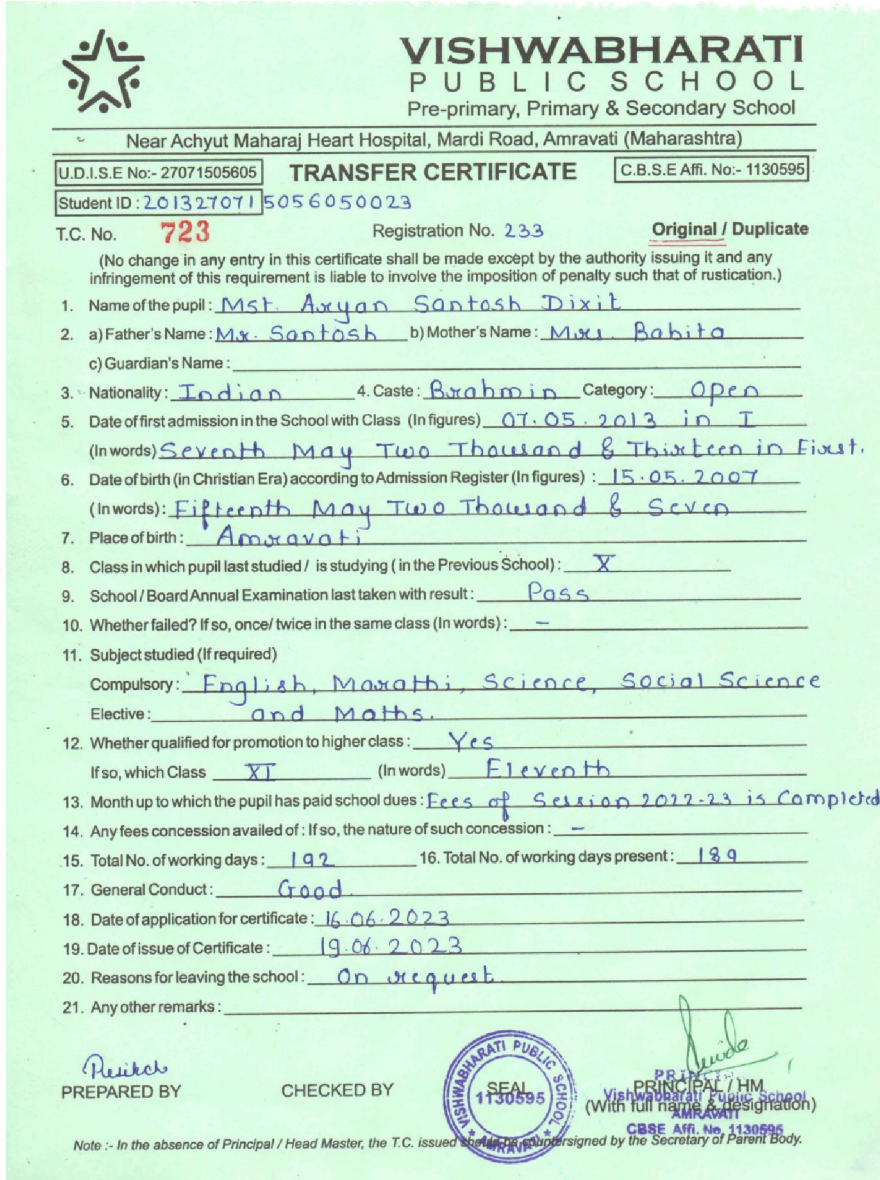 VISHWABHARATI
PUBLIC SCHOOL
Pre-primary, Primary & Secondary School
Near Achyut Maharaj Heart Hospital, Mardi Road, Amravati (Maharashtra)
U.D.I.S.E No:- 27071505605 TRANSFER CERTIFICATE C.B.S.E Affi. No:- 1130595
Student ID : 2013270715056050023
T.C. No. 723 Registration No. 233 Original / Duplicate
(No change in any entry in this certificate shall be made except by the authority issuing it and any
infringement of this requirement is liable to involve the imposition of penalty such that of rustication.)
1. Name of the pupil : Mst. Aryan Santosh Dixit
2. a) Father's Name : Mr. Santosh b) Mother's Name : Mrs. Babita
c) Guardian's Name :
3. Nationality : Indian 4. Caste : Brahmin Category : Open
5. Date of first admission in the School with Class (In figures) 07.05.2013 in I
(In words) Seventh May Two Thousand & Thirteen in First.
6. Date of birth (in Christian Era) according to Admission Register (In figures) : 15.05.2007
(In words) : Fifteenth May Two Thousand & Seven
7. Place of birth : Amravati
8. Class in which pupil last studied / is studying ( in the Previous School) : X
9. School / Board Annual Examination last taken with result : Pass
10. Whether failed? If so, once/ twice in the same class (In words) : –
11. Subject studied (If required)
Compulsory : English, Marathi, Science, Social Science
Elective : and Maths.
12. Whether qualified for promotion to higher class : Yes
If so, which Class XI (In words) Eleventh
13. Month up to which the pupil has paid school dues : Fees of Session 2022-23 is Completed
14. Any fees concession availed of : If so, the nature of such concession : –
15. Total No. of working days : 192 16. Total No. of working days present : 189
17. General Conduct : Good.
18. Date of application for certificate : 16.06.2023
19. Date of issue of Certificate : 19.06.2023
20. Reasons for leaving the school : On request
21. Any other remarks :
PREPARED BY CHECKED BY SEAL PRINCIPAL / HM
(With full name & designation)
VISHWABHARATI PUBLIC SCHOOL
1130595
AMRAVATI
Vishwabharati Public School
AMRAVATI
CBSE Affi. No. 1130595
Note :- In the absence of Principal / Head Master, the T.C. issued should be countersigned by the Secretary of Parent Body.